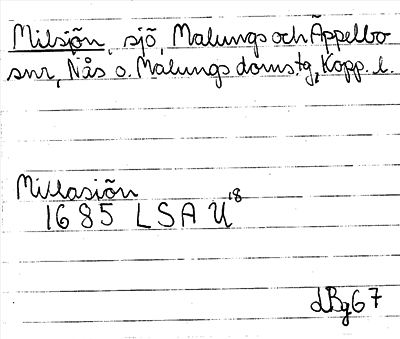 Milsjön, sjö, Malungs och Äppelbo
snr, Nås o. Malungs doms.tg, Kopp. l.
Millasiön
1685 LSA U18
dBg67